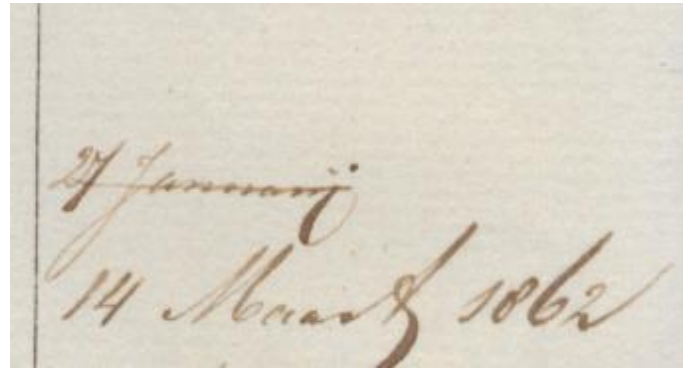 27 Januarij
14 Maart 1862